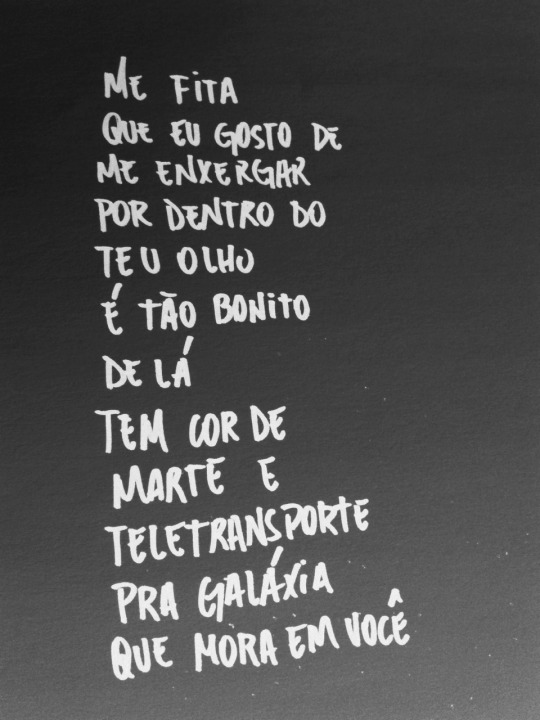 ME FITA
QUE EU GOSTO DE
ME ENXERGAR
POR DENTRO DO
TEU OLHO
É TÃO BONITO
DE LÁ
TEM COR DE
MARTE E
TELETRANSPORTE
PRA GALÁXIA
QUE MORA EM VOCÊ